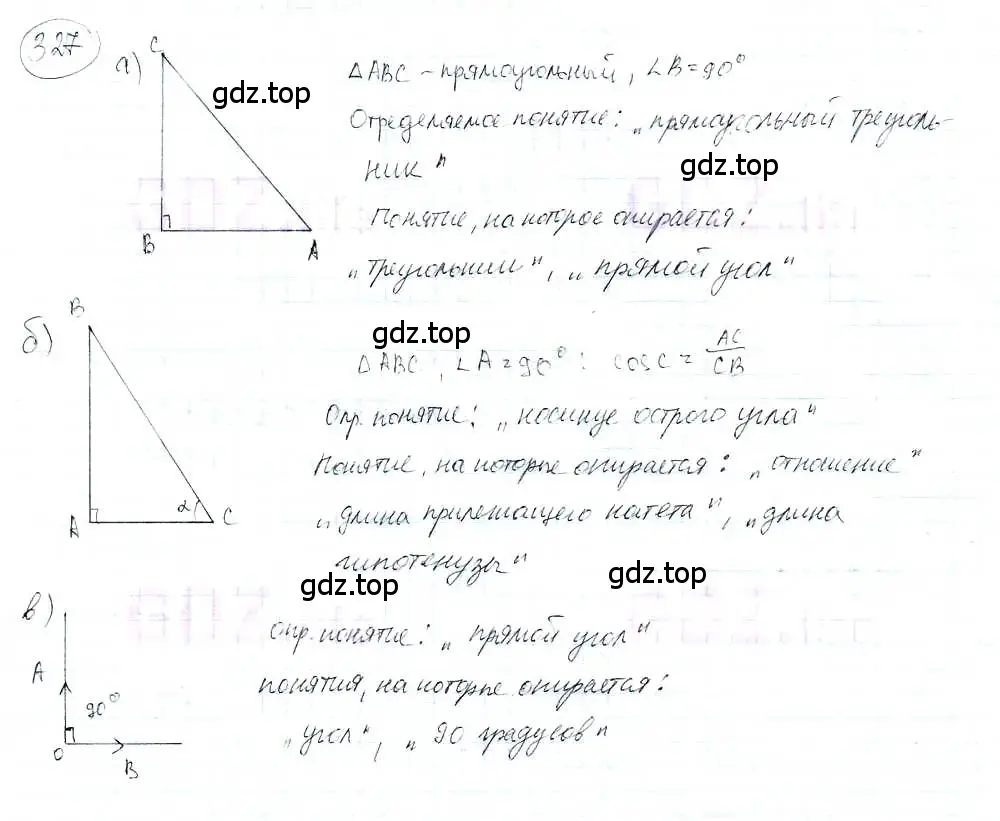 327
а)
C
B
A
gdz.top
△ABC - прямоугольный, ∠B = 90°
Определяемое понятие: „прямоугольный треуголь-
ник"
gdz.top
Понятие, на которое опирается:
„треугольник", „прямой угол"
б)
B
A
α
C
gdz.top
△ABC, ∠A = 90°: cos C = AC/CB
Опр. понятие: „косинус острого угла"
Понятие, на которые опирается: „отношение"
„длина прилежащего катета", „длина
гипотенузы"
gdz.top
gdz.top
в)
A
90°
O
B
Опр. понятие: „прямой угол"
понятия, на которые опирается:
„угол", „90 градусов"